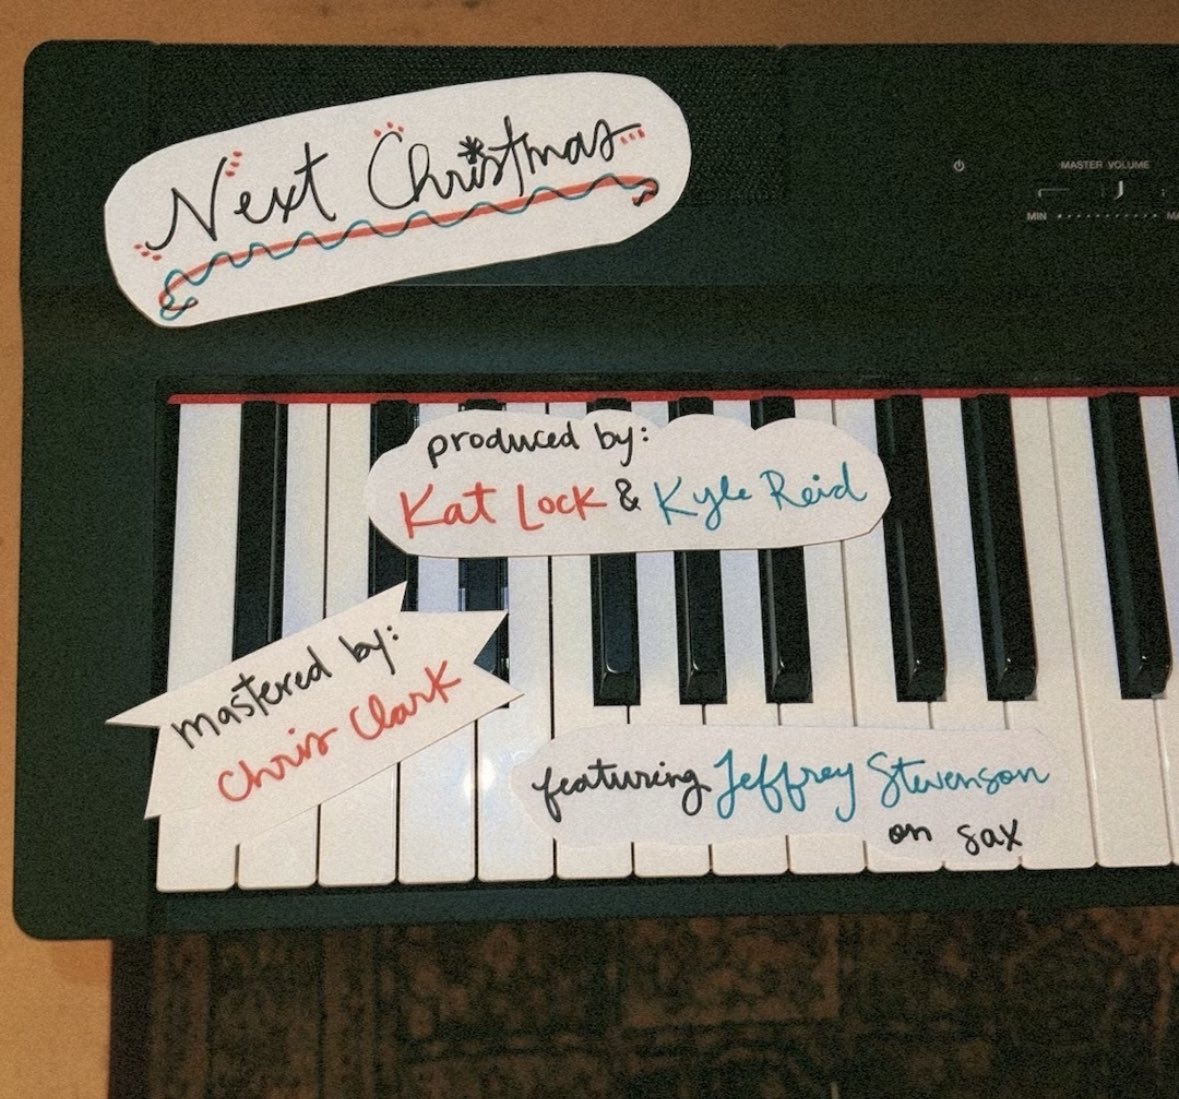 Next Christmas
MASTER VOLUME
MIN
produced by:
Kat Lock & Kyle Reid
mastered by:
Chris Clark
featuring Jeffrey Stevenson
on sax